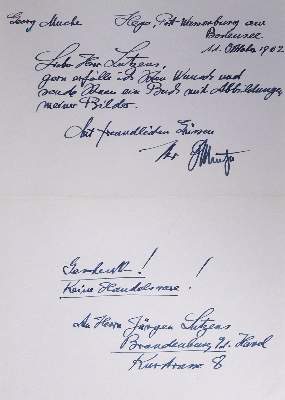 Georg Muche
Post Wasserburg am
Bodensee
11. Oktober 1982
Lieber Herr Lutzens,
gern erfülle ich Ihren Wunsch und
sende Ihnen ein Buch mit Abbildungen
meiner Bilder.
Mit freundlichen Grüssen
Ihr GMuche
Geschenk! !
Keine Handelsware!
An Herrn Jürgen Lutzens
Brandenburg / Havel
Kurstrasse 8